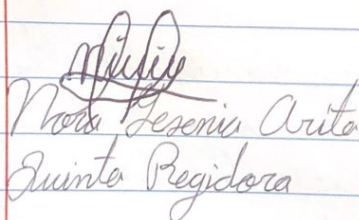 Nora Yesenia Arita
Quinta Regidora